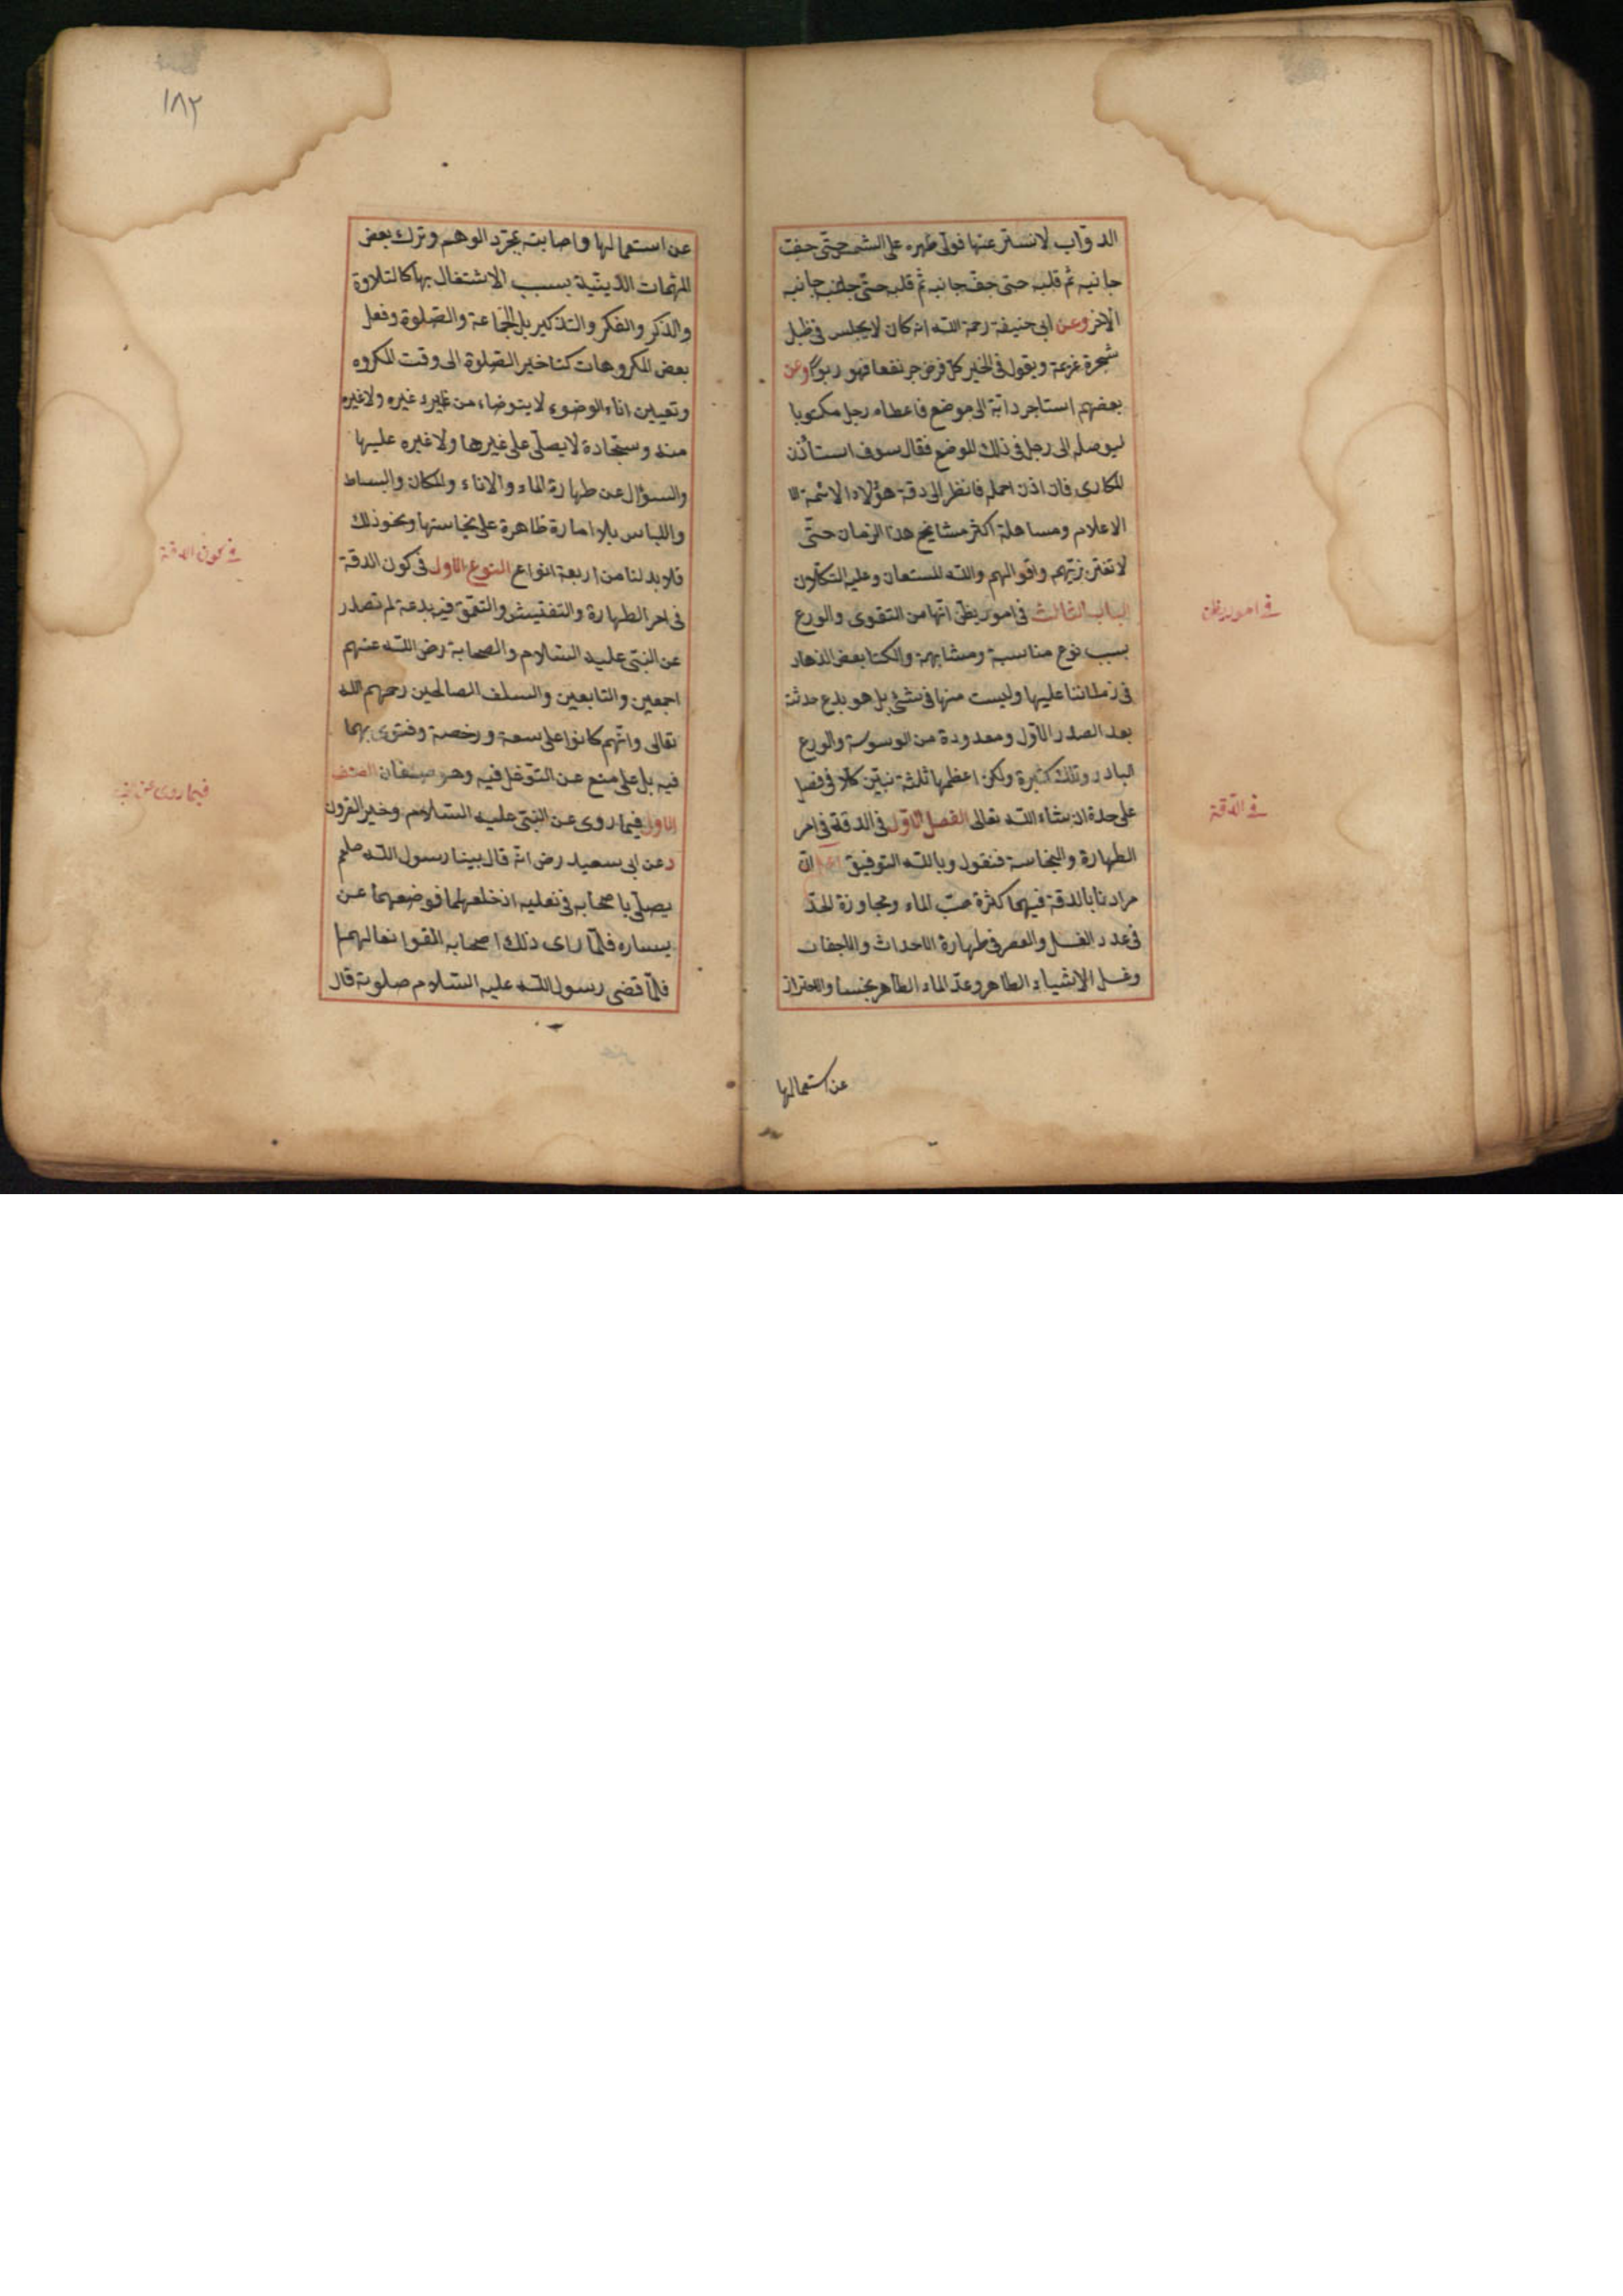 الدوّاب لانستر عنها فولّى ظهره على الشمس حتّى جفّت
جانبه ثم قلبه حتى جفّ جانبه ثم قلبه حتّى جفّ جانبه
الآخر وعن ابى حنيفة رحمة الله انه كان لايجلس فى ظل
شجرة غريمه ويقول فى الخبر كل قرض جر نفعا فهو ربوا وعن
بعضهم استاجر دابّة الى موضع فاعطاه رجل مكتوبا
ليوصله الى رجل فى ذلك الموضع فقال سوف استأذن
المكارى فان اذن احمله فانظر الى دقة هؤلاء الائمة
الاعلام ومساهلة اكثر مشايخ هذا الزمان حتّى
لاتغتر بزيّهم واقوالهم والله المستعان وعليه التكلان
الباب الثالث فى امور يظنّ انّها من التقوى والورع
بسبب نوع مناسبة ومشابهة والكتا بعض الزهاد
فى زماننا عليها وليست منها فى شئ بل هو بدع حدثت
بعد الصدر الاوّل ومعدودة من الوسوسة والورع
البادر وتلك كثيرة ولكن اعظمها ثلثة نبيّن كلا فى فصل
على حدة ان شاء الله تعالى الفصل الاوّل فى الدقة فى امر
الطهارة والنجاسة فنقول وبالله التوفيق اعلم انّ
مرادنا بالدقة فيهما كثرة صبّ الماء ومجاوزة الحدّ
فى عدد الغسل والعصر فى طهارة الاحداث والاجفات
وغسل الاشياء الطاهر وعدّ الماء الطاهر نجسا والاحتراز
عن استعمالها
فى امور يظن
فى الدّقة
١٨٢
عن استعمالها واصابته بمجرّد الوهم وترك بعض
المهمّات الدّينية بسبب الاشتغال بها كالتلاوة
والذكر والفكر والتذكير بل الجماعة والصّلوة وفعل
بعض المكروهات كتاخير الصّلوة الى وقت المكروه
وتعيين اناء الوضوء لا يتوضاء من غيره غيره ولاغيره
منه وسجّادة لا يصلّى على غيرها ولاغيره عليها
والسؤال عن طهارة الماء والاناء والمكان والبساط
واللباس بلا امارة ظاهرة على نجاستها ونحو ذلك
فلا بد لنا من اربعة انواع النوع الاول فى كون الدقة
فى امر الطهارة والتفتيش والتعمّق فيه بدعة لم تصدر
عن النبّى عليه السّلام والصحابة رضى الله عنهم
اجمعين والتابعين والسلف الصالحين رحمهم الله
تعالى وانّهم كانوا على سعة ورخصة وفتوى بهما
فيه بل على منع عن التوغّل فيه وهو صنفان الصنف
الاول فيما روى عن النبّى عليه السّلام وخير القرون
د عن ابى سعيد رض انه قال بينا رسول الله صلعم
يصلّى باصحابه فى نعليه اذ خلعهما فوضعهما عن
يساره فلمّا راى ذلك اصحابه القوا نعالهم
فلمّا قضى رسول الله عليه السّلام صلوته قال
فى كون الدقة
فيما روى عن النبى